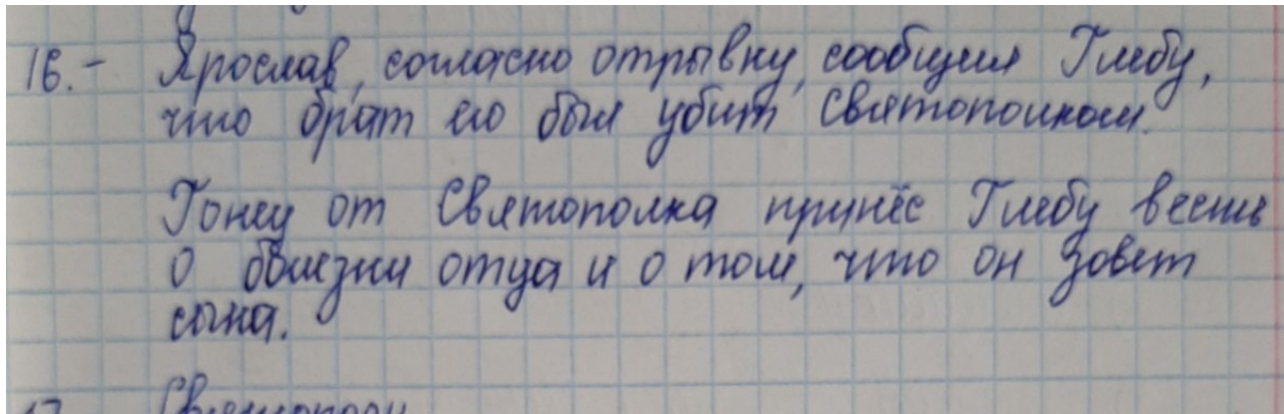 16.- Ярослав, согласно отрывку, сообщил Глебу,
что брат его был убит Святополком.
Гонец от Святополка принёс Глебу весть
о болезни отца и о том, что он зовет
сына.